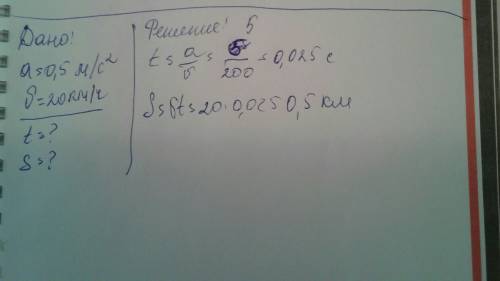 Дано!
a=0,5 м/с²
υ=20км/ч
t=?
s=?
Решение! 5
t = a/υ = 5/200 = 0,025 с
S=υt=20·0,025 0,5 км